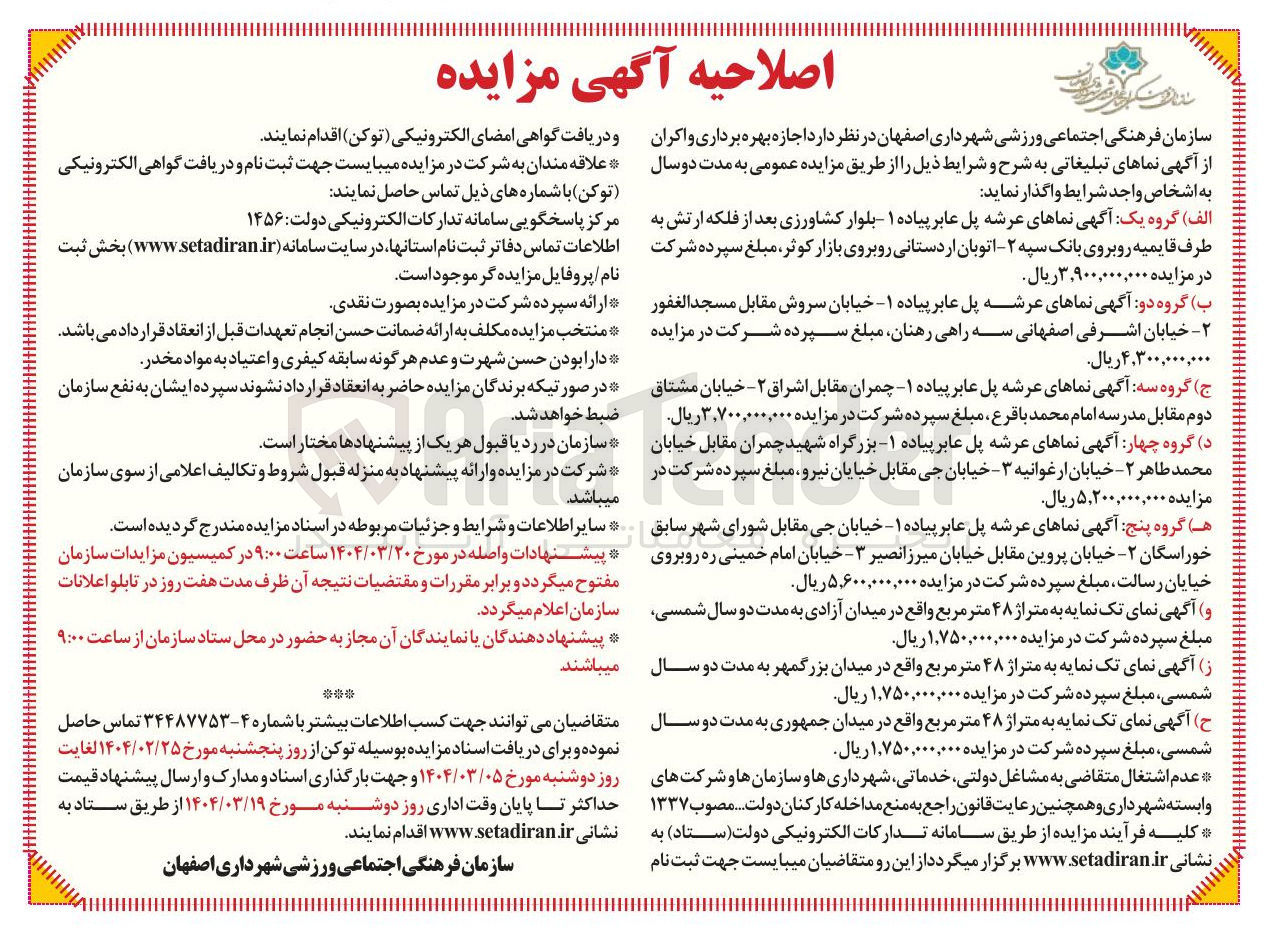 اصلاحیه آگهی مزایده
سازمان فرهنگی اجتماعی ورزشی شهرداری اصفهان در نظر دارد اجازه بهره برداری و اکران
از آگهی نماهای تبلیغاتی به شرح و شرایط ذیل را از طریق مزایده عمومی به مدت دو سال
به اشخاص واجد شرایط واگذار نماید:
الف) گروه یک: آگهی نماهای عرشه پل عابر پیاده ۱-بلوار کشاورزی بعد از فلکه ارتش به
طرف قایمیه روبروی بانک سپه ۲-اتوبان اردستانی روبروی بازار کوثر، مبلغ سپرده شرکت
در مزایده ۳,۹۰۰,۰۰۰,۰۰۰ریال.
ب) گروه دو: آگهی نماهای عرشه پل عابر پیاده ۱-خیابان سروش مقابل مسجدالغفور
۲- خیابان اشرفی اصفهانی سه راهی رهنان، مبلغ سپرده شرکت در مزایده
۴,۳۰۰,۰۰۰,۰۰۰ریال.
ج) گروه سه: آگهی نماهای عرشه پل عابر پیاده ۱-چمران مقابل اشراق ۲-خیابان مشتاق
دوم مقابل مدرسه امام محمد باقر ع، مبلغ سپرده شرکت در مزایده ۳,۷۰۰,۰۰۰,۰۰۰ریال.
د) گروه چهار: آگهی نماهای عرشه پل عابر پیاده ۱-بزرگراه شهید چمران مقابل خیابان
محمد طاهر ۲-خیابان ارغوانیه ۳-خیابان جی مقابل خیابان نیرو، مبلغ سپرده شرکت در
مزایده ۵,۲۰۰,۰۰۰,۰۰۰ریال.
هـ) گروه پنج: آگهی نماهای عرشه پل عابر پیاده ۱-خیابان جی مقابل شورای شهر سابق
خوراسگان ۲-خیابان پروین مقابل خیابان میرزانصیر ۳-خیابان امام خمینی ره روبروی
خیابان رسالت، مبلغ سپرده شرکت در مزایده ۵,۶۰۰,۰۰۰,۰۰۰ریال.
و) آگهی نمای تک نمایه به متراژ ۴۸ متر مربع واقع در میدان آزادی به مدت دو سال شمسی،
مبلغ سپرده شرکت در مزایده ۱,۷۵۰,۰۰۰,۰۰۰ریال.
ز) آگهی نمای تک نمایه به متراژ ۴۸ متر مربع واقع در میدان بزرگمهر به مدت دو سال
شمسی، مبلغ سپرده شرکت در مزایده ۱,۷۵۰,۰۰۰,۰۰۰ریال.
ح) آگهی نمای تک نمایه به متراژ ۴۸ متر مربع واقع در میدان جمهوری به مدت دو سال
شمسی، مبلغ سپرده شرکت در مزایده ۱,۷۵۰,۰۰۰,۰۰۰ریال.
*عدم اشتغال متقاضی به مشاغل دولتی، خدماتی، شهرداری ها و سازمان ها و شرکت های
وابسته شهرداری و همچنین رعایت قانون راجع به منع مداخله کارکنان دولت...مصوب ۱۳۳۷
* کلیه فرآیند مزایده از طریق سامانه تدارکات الکترونیکی دولت (ستاد) به
نشانی www.setadiran.ir برگزار میگردد از این رو متقاضیان میبایست جهت ثبت نام
و دریافت گواهی امضای الکترونیکی (توکن) اقدام نمایند.
*علاقه مندان به شرکت در مزایده میبایست جهت ثبت نام و دریافت گواهی الکترونیکی
(توکن) با شماره های ذیل تماس حاصل نمایند:
مرکز پاسخگویی سامانه تدارکات الکترونیکی دولت: ۱۴۵۶
اطلاعات تماس دفاتر ثبت نام استانها، در سایت سامانه (www.setadiran.ir) بخش ثبت
نام/پروفایل مزایده گر موجود است.
*ارائه سپرده شرکت در مزایده بصورت نقدی.
*منتخب مزایده مکلف به ارائه ضمانت حسن انجام تعهدات قبل از انعقاد قرارداد می باشد.
*دارا بودن حسن شهرت و عدم هرگونه سابقه کیفری و اعتیاد به مواد مخدر.
*در صورتیکه برندگان مزایده حاضر به انعقاد قرارداد نشوند سپرده ایشان به نفع سازمان
ضبط خواهد شد.
*سازمان در رد یا قبول هر یک از پیشنهادها مختار است.
*شرکت در مزایده و ارائه پیشنهاد به منزله قبول شروط و تکالیف اعلامی از سوی سازمان
میباشد.
*سایر اطلاعات و شرایط و جزئیات مربوطه در اسناد مزایده مندرج گردیده است.
* پیشنهادات واصله در مورخ ۱۴۰۴/۰۳/۲۰ ساعت ۹:۰۰ در کمیسیون مزایدات سازمان
مفتوح میگردد و برابر مقررات و مقتضیات نتیجه آن ظرف مدت هفت روز در تابلو اعلانات
سازمان اعلام میگردد.
* پیشنهاد دهندگان یا نمایندگان آن مجاز به حضور در محل ستاد سازمان از ساعت ۹:۰۰
میباشند.
***
متقاضیان می توانند جهت کسب اطلاعات بیشتر با شماره ۴-۳۴۴۸۷۷۵۳ تماس حاصل
نموده و برای دریافت اسناد مزایده بوسیله توکن از روز پنجشنبه مورخ ۱۴۰۴/۰۲/۲۵ لغایت
روز دوشنبه مورخ ۱۴۰۴/۰۳/۰۵ و جهت بارگذاری اسناد و مدارک و ارسال پیشنهاد قیمت
حداکثر تا پایان وقت اداری روز دوشنبه مورخ ۱۴۰۴/۰۳/۱۹ از طریق ستاد به
نشانی www.setadiran.ir اقدام نمایند.
سازمان فرهنگی اجتماعی ورزشی شهرداری اصفهان
AriaTender